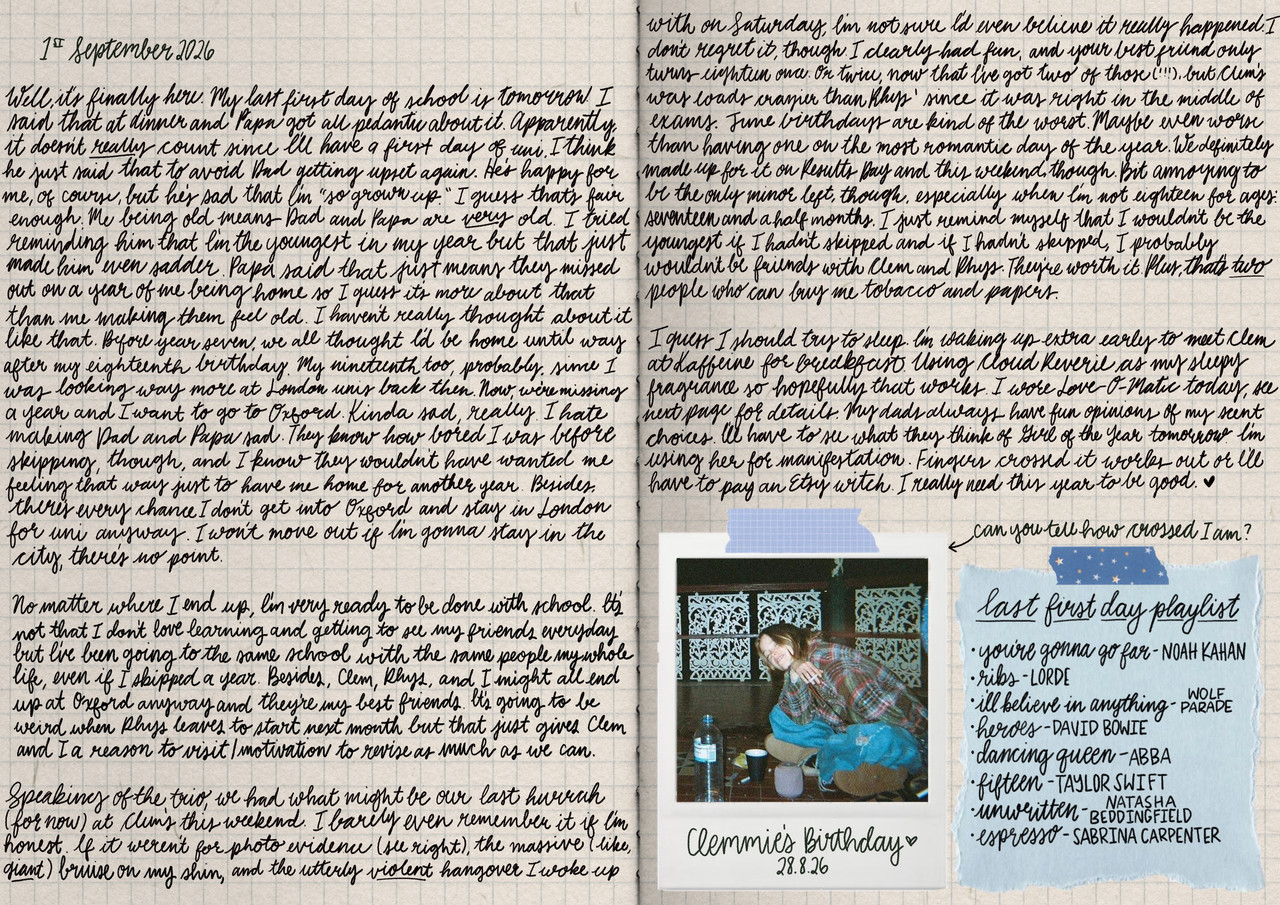 1ST September 2026
Well, it's finally here. My last first day of school is tomorrow! I
said that at dinner and Papa got all pedantic about it. Apparently,
it doesn't really count since I'll have a first day of uni. I think
he just said that to avoid Dad getting upset again. He's happy for
me, of course, but he's sad that I'm "so grown up." I guess that's fair
enough. Me being old means Dad and Papa are very old. I tried
reminding him that I'm the youngest in my year but that just
made him even sadder. Papa said that just means they missed
out on a year of me being home so I guess it's more about that
than me making them feel old. I haven't really thought about it
like that. Before year seven, we all thought I'd be home until way
after my eighteenth birthday. My nineteenth too, probably, since I
was looking way more at London unis back then. Now, we're missing
a year and I want to go to Oxford. Kinda sad, really. I hate
making Dad and Papa sad. They know how bored I was before
skipping, though, and I know they wouldn't have wanted me
feeling that way just to have me home for another year. Besides,
there's every chance I don't get into Oxford and stay in London
for uni anyway. I won't move out if I'm gonna stay in the
city, there's no point.
No matter where I end up, I'm very ready to be done with school. It's
not that I don't love learning and getting to see my friends everyday
but I've been going to the same school with the same people my whole
life, even if I skipped a year. Besides, Clem, Rhys, and I might all end
up at Oxford anyway and they're my best friends. It's going to be
weird when Rhys leaves to start next month but that just gives Clem
and I a reason to visit/motivation to revise as much as we can.
Speaking of the trio, we had what might be our last hurrah
(for now) at Clem's this weekend. I barely even remember it if I'm
honest. If it weren't for photo evidence (see right), the massive (like,
giant) bruise on my shin, and the utterly violent hangover I woke up
with on Saturday, I'm not sure I'd even believe it really happened. I
don't regret it, though I clearly had fun, and your best friend only
turns eighteen once. Or twice, now that I've got two of those (!!!), but Clem's
was loads crazier than Rhys' since it was right in the middle of
exams. June birthdays are kind of the worst. Maybe even worse
than having one on the most romantic day of the year. We definitely
made up for it on Results Day and this weekend, though. But annoying to
be the only minor left, though, especially when I'm not eighteen for ages:
seventeen and a half months. I just remind myself that I wouldn't be the
youngest if I hadn't skipped and if I hadn't skipped, I probably
wouldn't be friends with Clem and Rhys. They're worth it. Plus, that's two
people who can buy me tobacco and papers.
I guess I should try to sleep. I'm waking up extra early to meet Clem
at Kaffeine for breakfast. Using Cloud Reverie as my sleepy
fragrance so hopefully that works. I wore Love-O-Matic today, see
next page for details. My dads always have fun opinions of my scent
choices. I'll have to see what they think of Girl of the Year tomorrow I'm
using her for manifestation. Fingers crossed it works out or I'll
have to pay an Etsy witch. I really need this year to be good. ♥
can you tell how crossed I am?
Clemmie's Birthday ♥
28.8.26
last first day playlist
• you're gonna go far - NOAH KAHAN
• ribs - LORDE
• i'll believe in anything - WOLF PARADE
• heroes - DAVID BOWIE
• dancing queen - ABBA
• fifteen - TAYLOR SWIFT
• unwritten - NATASHA BEDDINGFIELD
• espresso - SABRINA CARPENTER